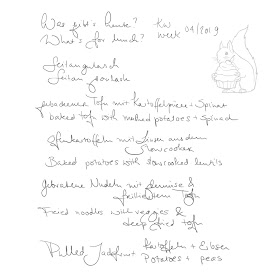 Was gibt's heute? KW
What's for lunch? week 04/2019
Seitangulasch
Seitan goulash
gebackener Tofu mit Kartoffelpüree + Spinat
baked tofu with mashed potatoes + Spinach
Ofenkartoffeln mit Linsen aus dem
Slowcooker
Baked potatoes with slowcooked lentils
Gebratene Nudeln mit Gemüse &
frittiertem Tofu
Fried noodles with veggies &
deep fried tofu
Pulled Jackfruit Kartoffeln + Erbsen
Potatoes + peas